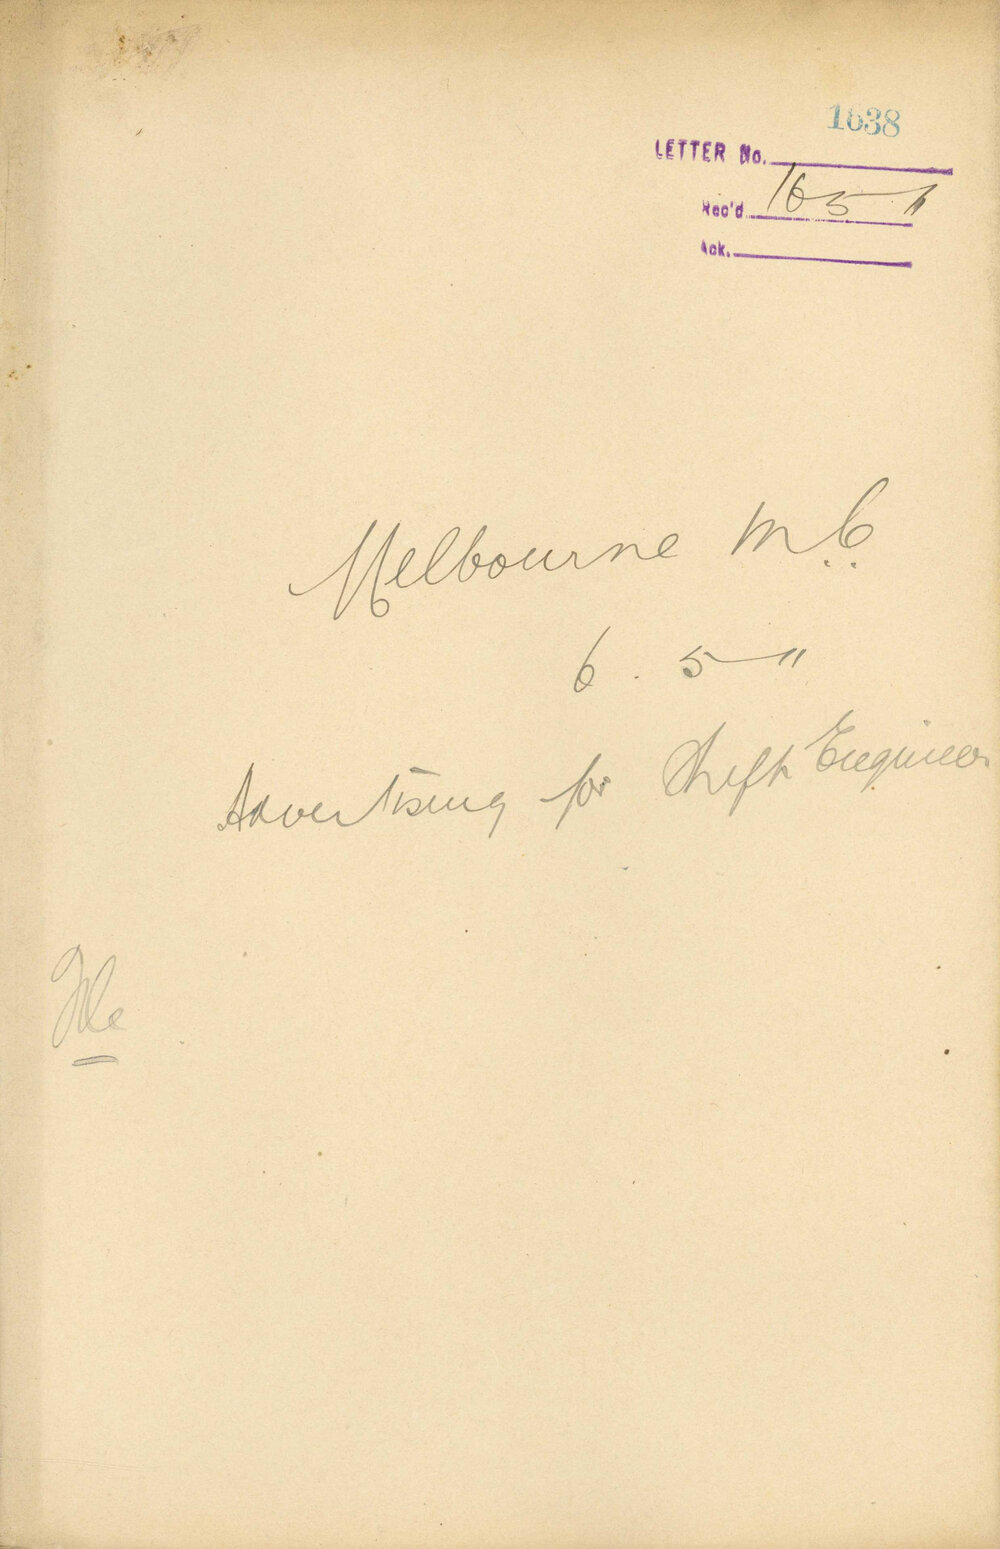 1638
LETTER No.
Rec'd 16 5 11
Ack.
Melbourne M.C.
6 . 5 - 11
Advertising for Shift Engineer
File